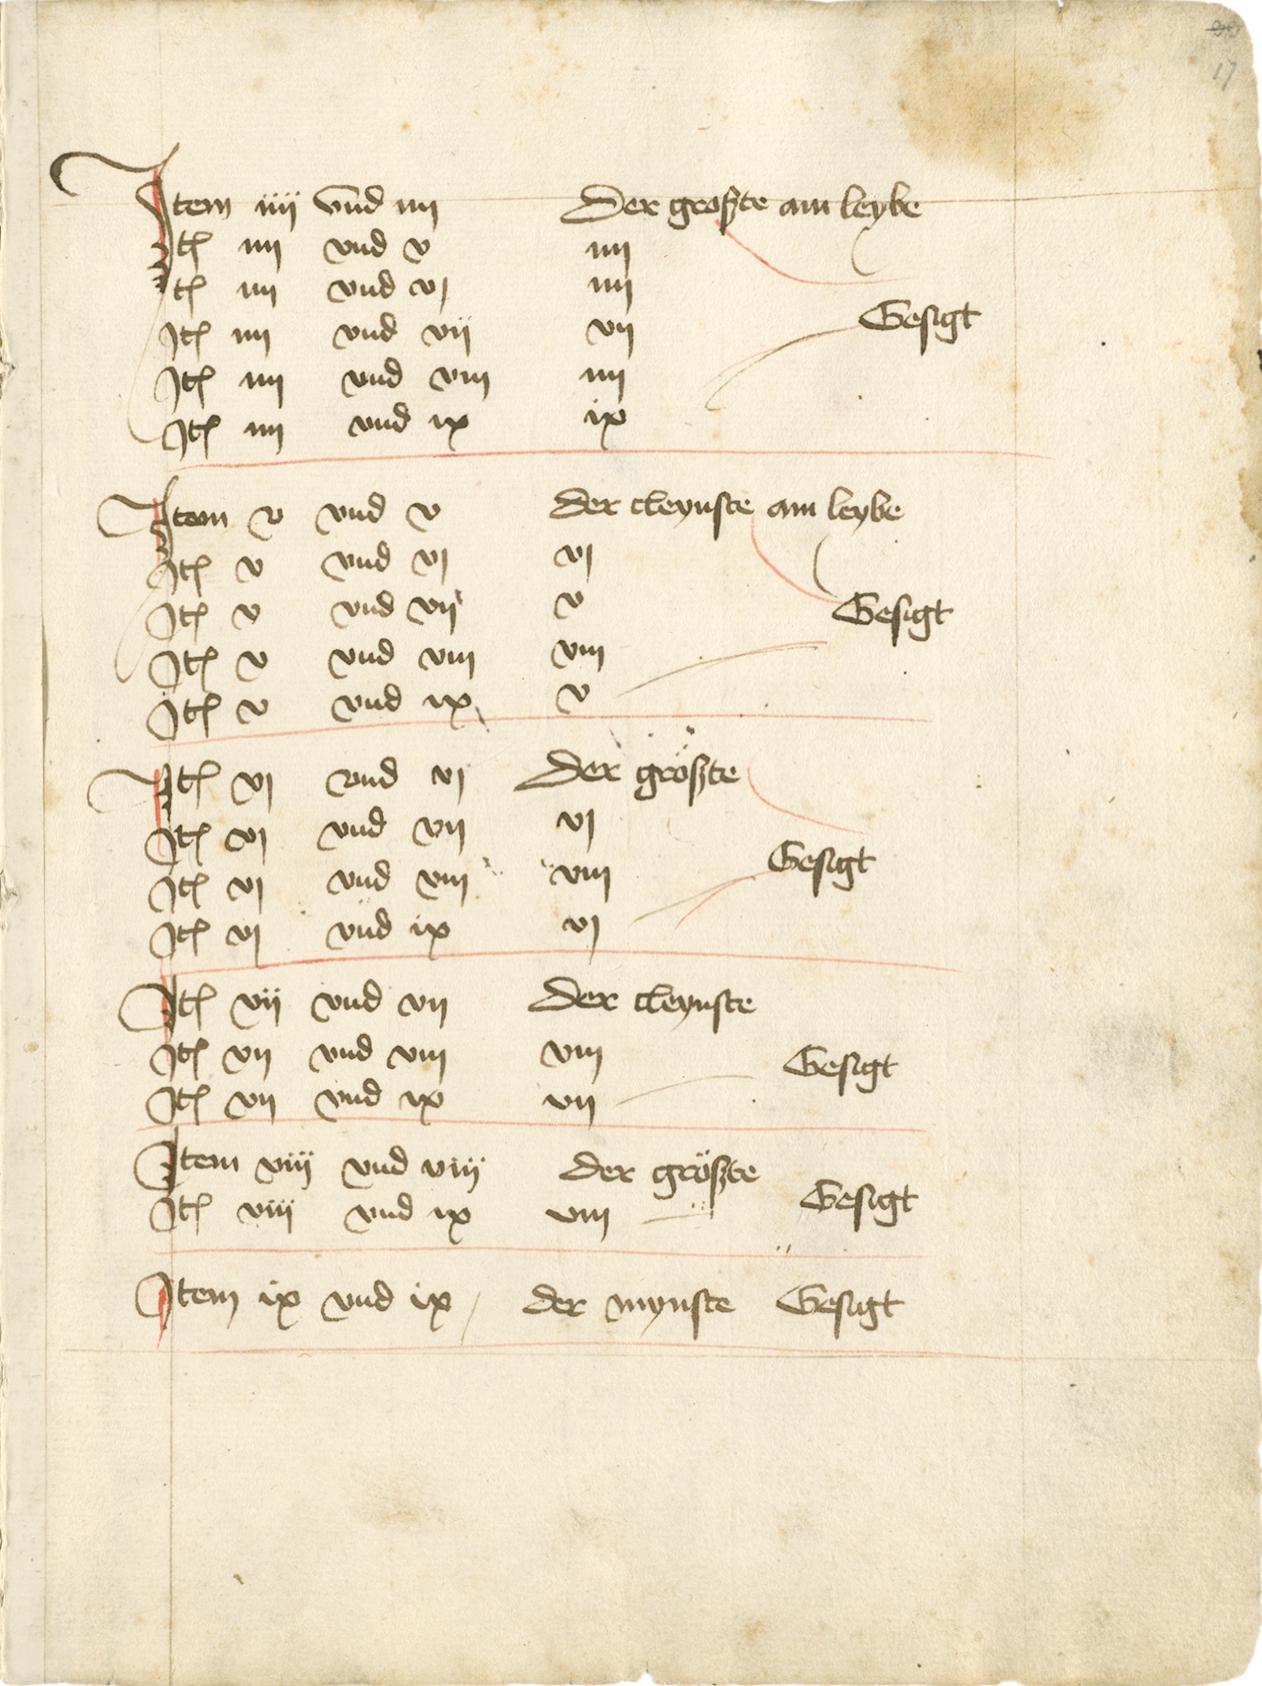 17
Item iiij vnd iiij Der großte am leybe
Itꝫ iiij vnd v iiij
Itꝫ iiij vnd vj iiij
Gesigt
Itꝫ iiij vnd vij vij
Itꝫ iiij vnd viij iiij
Itꝫ iiij vnd ix ix
Item v vnd v der cleynste am leybe
Itꝫ v vnd vj vj
Itꝫ v vnd vij v
Gesigt
Itꝫ v vnd viij viij
Itꝫ v vnd ix v
Itꝫ vj vnd vj Der größte
Itꝫ vj vnd vij vj
Gesigt
Itꝫ vj vnd viij viij
Itꝫ vj vnd ix vj
Itꝫ vij vnd vij Der cleynste
Itꝫ vij vnd viij viij
Gesigt
Itꝫ vij vnd ix vij
Item viij vnd viij der größte
Gesigt
Itꝫ viij vnd ix viij
Item ix vnd ix / der mynste Gesigt